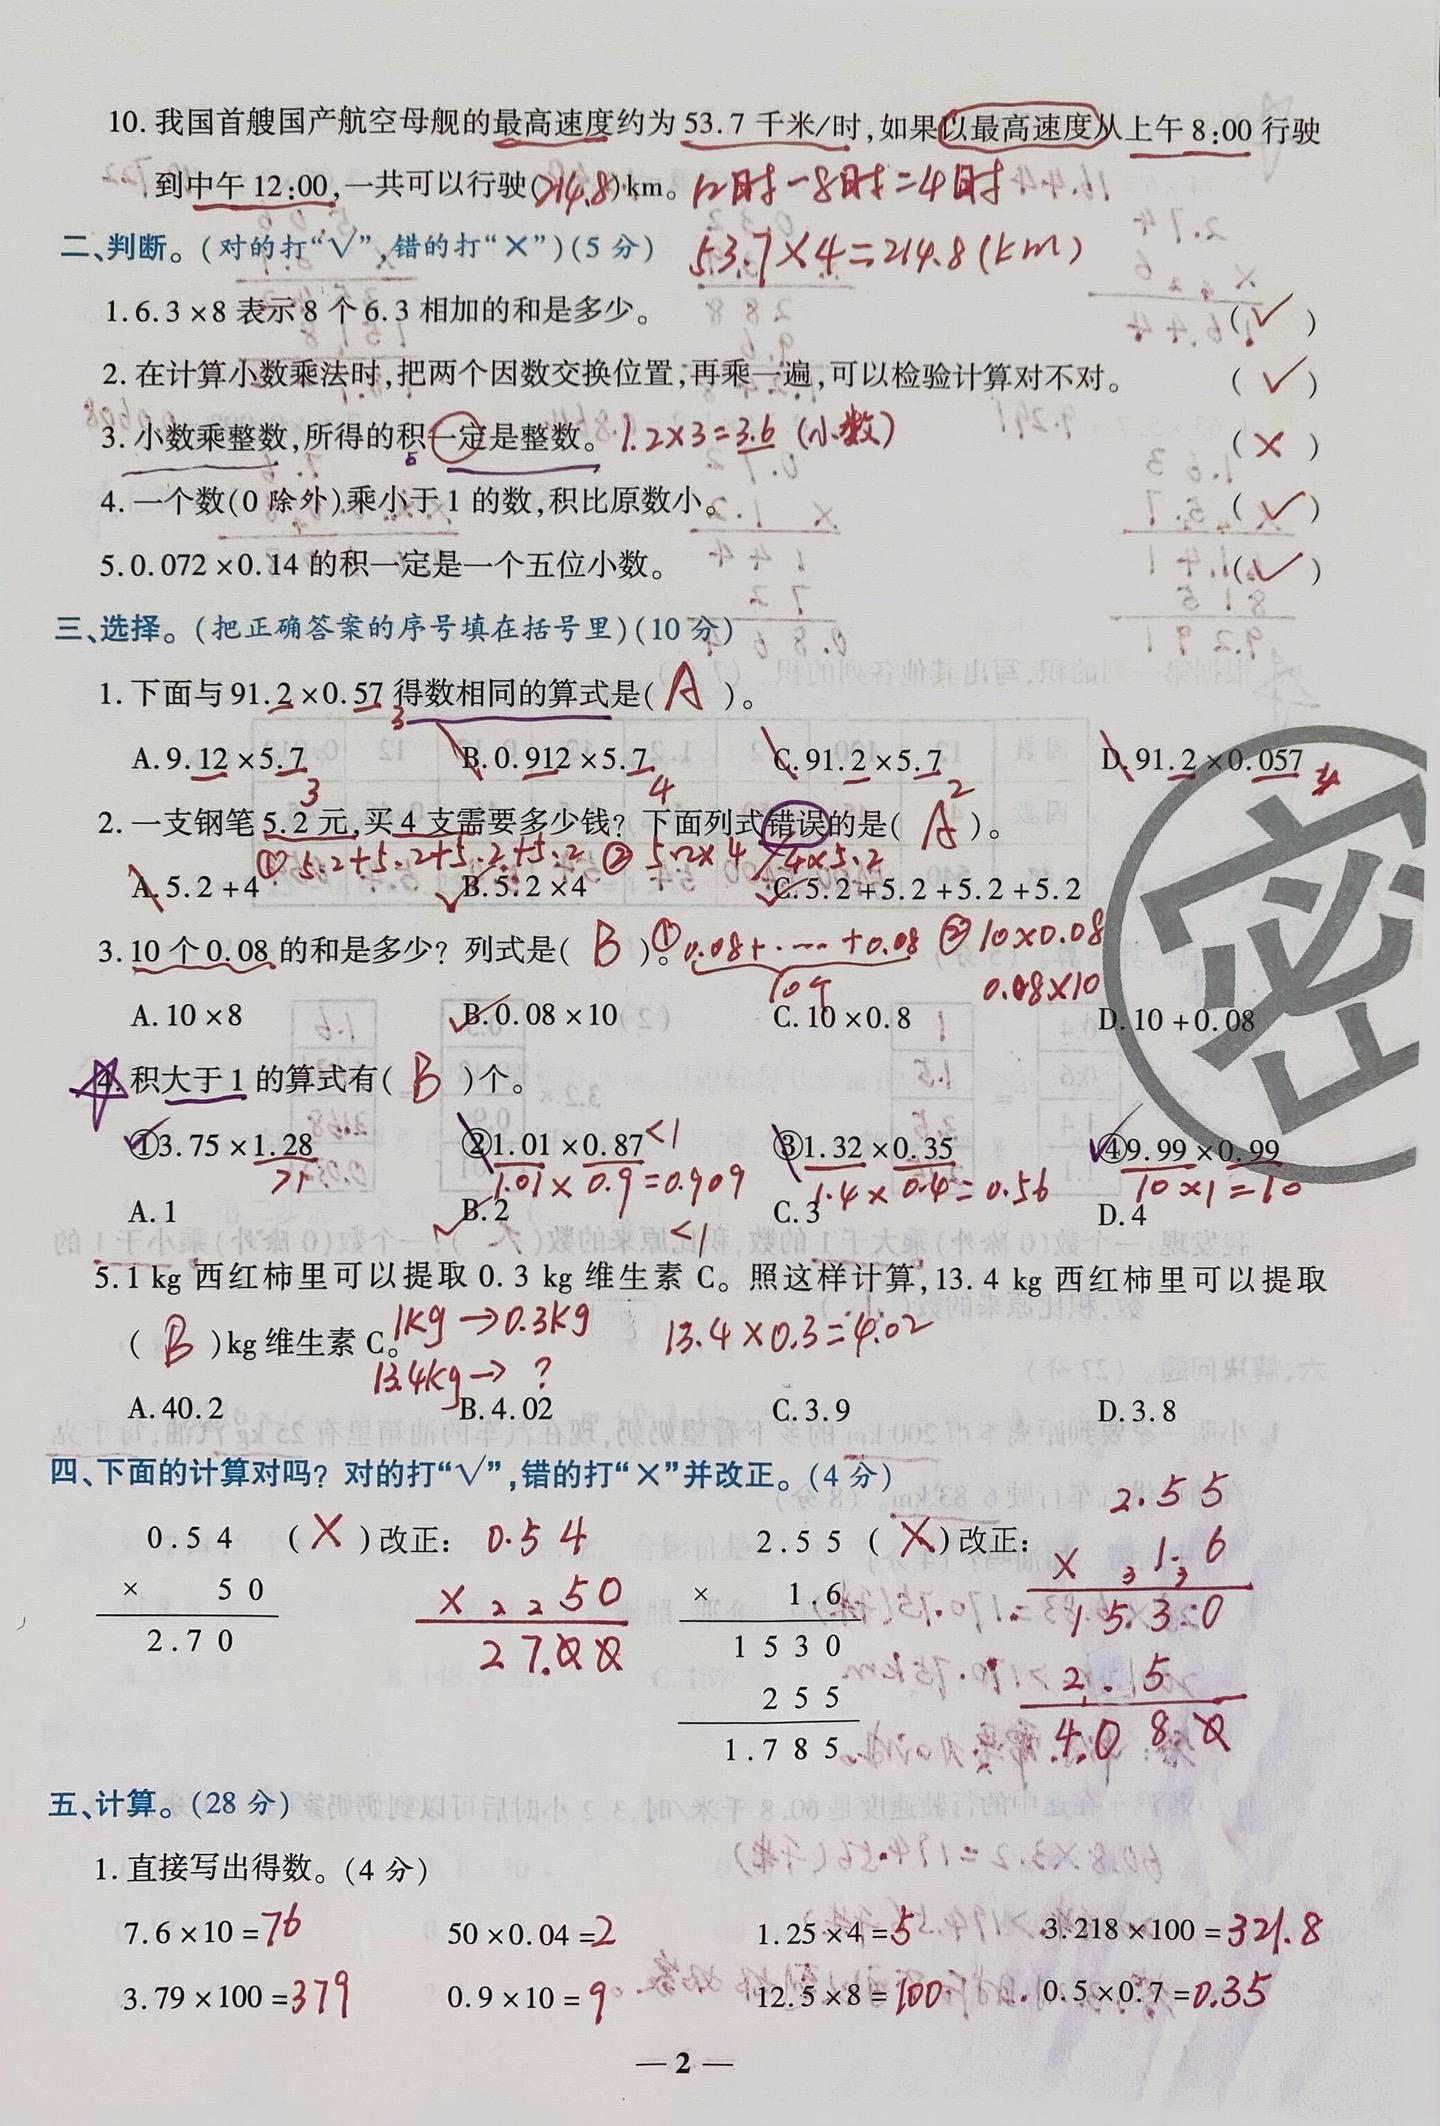 10. 我国首艘国产航空母舰的最高速度约为 53.7 千米/时,如果以最高速度从上午 8:00 行驶
到中午 12:00,一共可以行驶(214.8)km。 12时-8时=4时
二、判断。(对的打“√”,错的打“×”)(5 分) 53.7×4=214.8(km)
1. 6.3×8 表示 8 个 6.3 相加的和是多少。 (√)
2. 在计算小数乘法时,把两个因数交换位置,再乘一遍,可以检验计算对不对。 (√)
3. 小数乘整数,所得的积一定是整数。 1.2×3=3.6 (小数) (×)
4. 一个数(0 除外)乘小于 1 的数,积比原数小。 (√)
5. 0.072×0.14 的积一定是一个五位小数。 (√)
三、选择。(把正确答案的序号填在括号里)(10 分)
1. 下面与 91.2×0.57 得数相同的算式是( A )。
3
A. 9.12×5.7 B. 0.912×5.7 C. 91.2×5.7 D. 91.2×0.057
3 4 2 4
2. 一支钢笔 5.2 元,买 4 支需要多少钱? 下面列式错误的是( A )。
① 5.2+5.2+5.2+5.2 ② 5.2×4/4×5.2
A. 5.2+4 B. 5.2×4 C. 5.2+5.2+5.2+5.2
3. 10 个 0.08 的和是多少? 列式是( B )。 ① 0.08+……+0.08 ② 10×0.08
10个 0.08×10
A. 10×8 B. 0.08×10 C. 10×0.8 D. 10+0.08
4. 积大于 1 的算式有( B )个。
①3.75×1.28 ②1.01×0.87<1 ③1.32×0.35 ④9.99×0.99
>1 1.01×0.9=0.909 1.4×0.4=0.56 10×1=10
A. 1 B. 2 C. 3 D. 4
<1
5. 1 kg 西红柿里可以提取 0.3 kg 维生素 C。照这样计算,13.4 kg 西红柿里可以提取
( B )kg 维生素 C。 1kg→0.3kg 13.4×0.3=4.02
13.4kg→?
A. 40.2 B. 4.02 C. 3.9 D. 3.8
四、下面的计算对吗? 对的打“√”,错的打“×”并改正。(4 分)
2.55
0.54 (×)改正: 0.54 2.55 (×)改正:
× 1.6
× 50 × 50 × 1.6
2.70 27.00 1530 15.30
255 2.15
1.785 4.080
五、计算。(28 分)
1. 直接写出得数。(4 分)
7.6×10=76 50×0.04=2 1.25×4=5 3.218×100=321.8
3.79×100=379 0.9×10=9 12.5×8=100 0.5×0.7=0.35
— 2 —
密